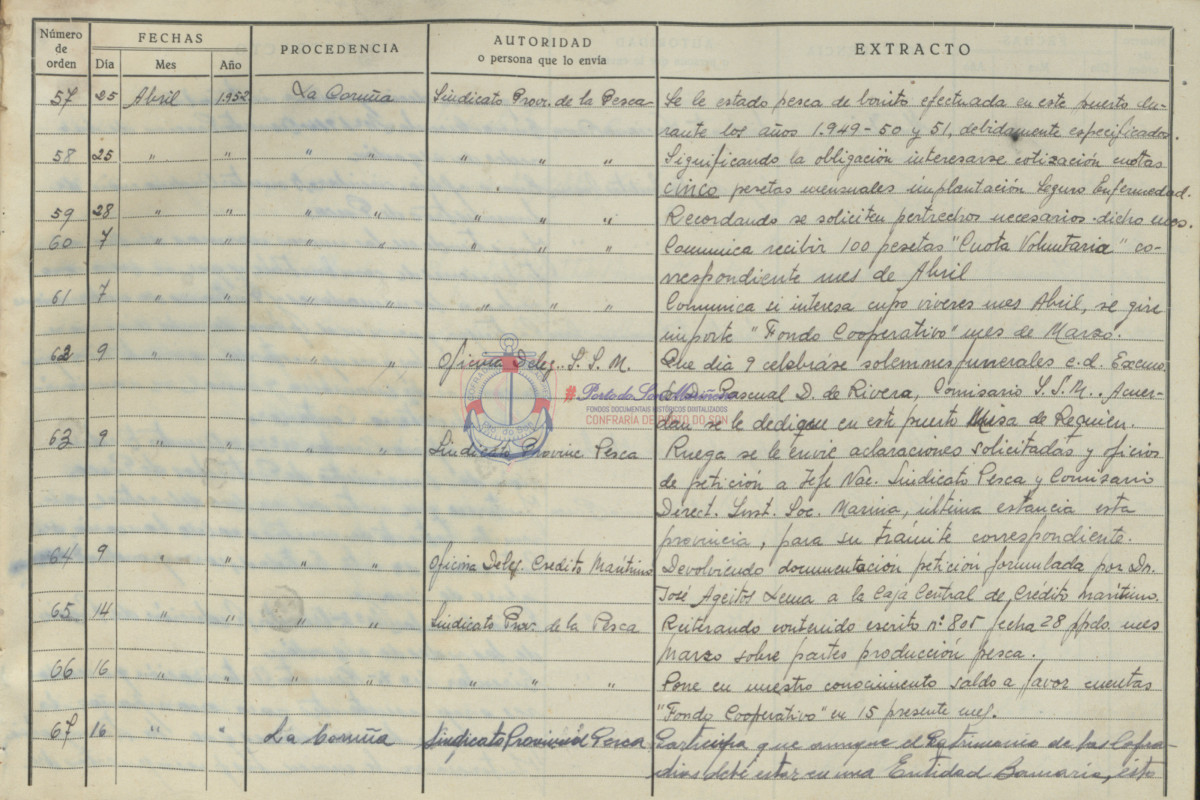 Número de orden FECHAS PROCEDENCIA AUTORIDAD o persona que lo envía EXTRACTO
Día Mes Año
57 25 Abril 1.952 La Coruña Sindicato Prov. de la Pesca Se le estado pesca de bonito efectuada en este puerto du-
rante los años 1.949-50 y 51, debidamente especificados.
58 25 " " " " " " " Significando la obligación interesarse cotización cuotas
cinco pesetas mensuales implantación Seguro Enfermedad.
59 28 " " " " " " " Recordando se soliciten pertrechos necesarios dicho mes.
60 7 " " " " " " " Comunica recibir 100 pesetas "Cuota Voluntaria" co-
rrespondiente mes de Abril
61 7 " " " " " " " Comunica si interesa cupo viveres mes Abril, se gire
importe "Fondo Cooperativo" mes de Marzo.
62 9 " " " " Oficina Deleg. S. S. M. Que dia 9 celebráse solemnes funerales e.d. Excmo.
Pascual D. de Rivera, Comisario S.S.M. Acuer-
dan se le dedique en este puerto Misa de Requien.
#Porto do Son Mariñeiro
FONDOS DOCUMENTAIS HISTÓRICOS DIGITALIZADOS
CONFRARÍA DE PORTO DO SON
63 9 " " " " Sindicato Provinc Pesca Ruega se le envie aclaraciones solicitadas y oficios
de petición a Jefe Nac. Sindicato Pesca y Comisario
Direct. Inst. Soc. Marina, última estancia esta
provincia, para su trámite correspondiente.
64 9 " " " " Oficina Deleg. Credito Marítimo Devolviendo documentación petición formulada por Dn.
José Ageitos Lema a la Caja Central de Crédito marítimo.
65 14 " " " " Sindicato Prov. de la Pesca Reiterando contenido escrito nº 805 fecha 28 ppdo. mes
Marzo sobre partes producción pesca.
66 16 " " " " " " " Pone en nuestro conocimiento saldo a favor cuentas
"Fondo Cooperativo" en 15 presente mes.
67 16 " " La Coruña Sindicato Provincial Pesca Participa que aunque el Patrimonio de las Cofra-
dias debe estar en una Entidad Bancaria, esto